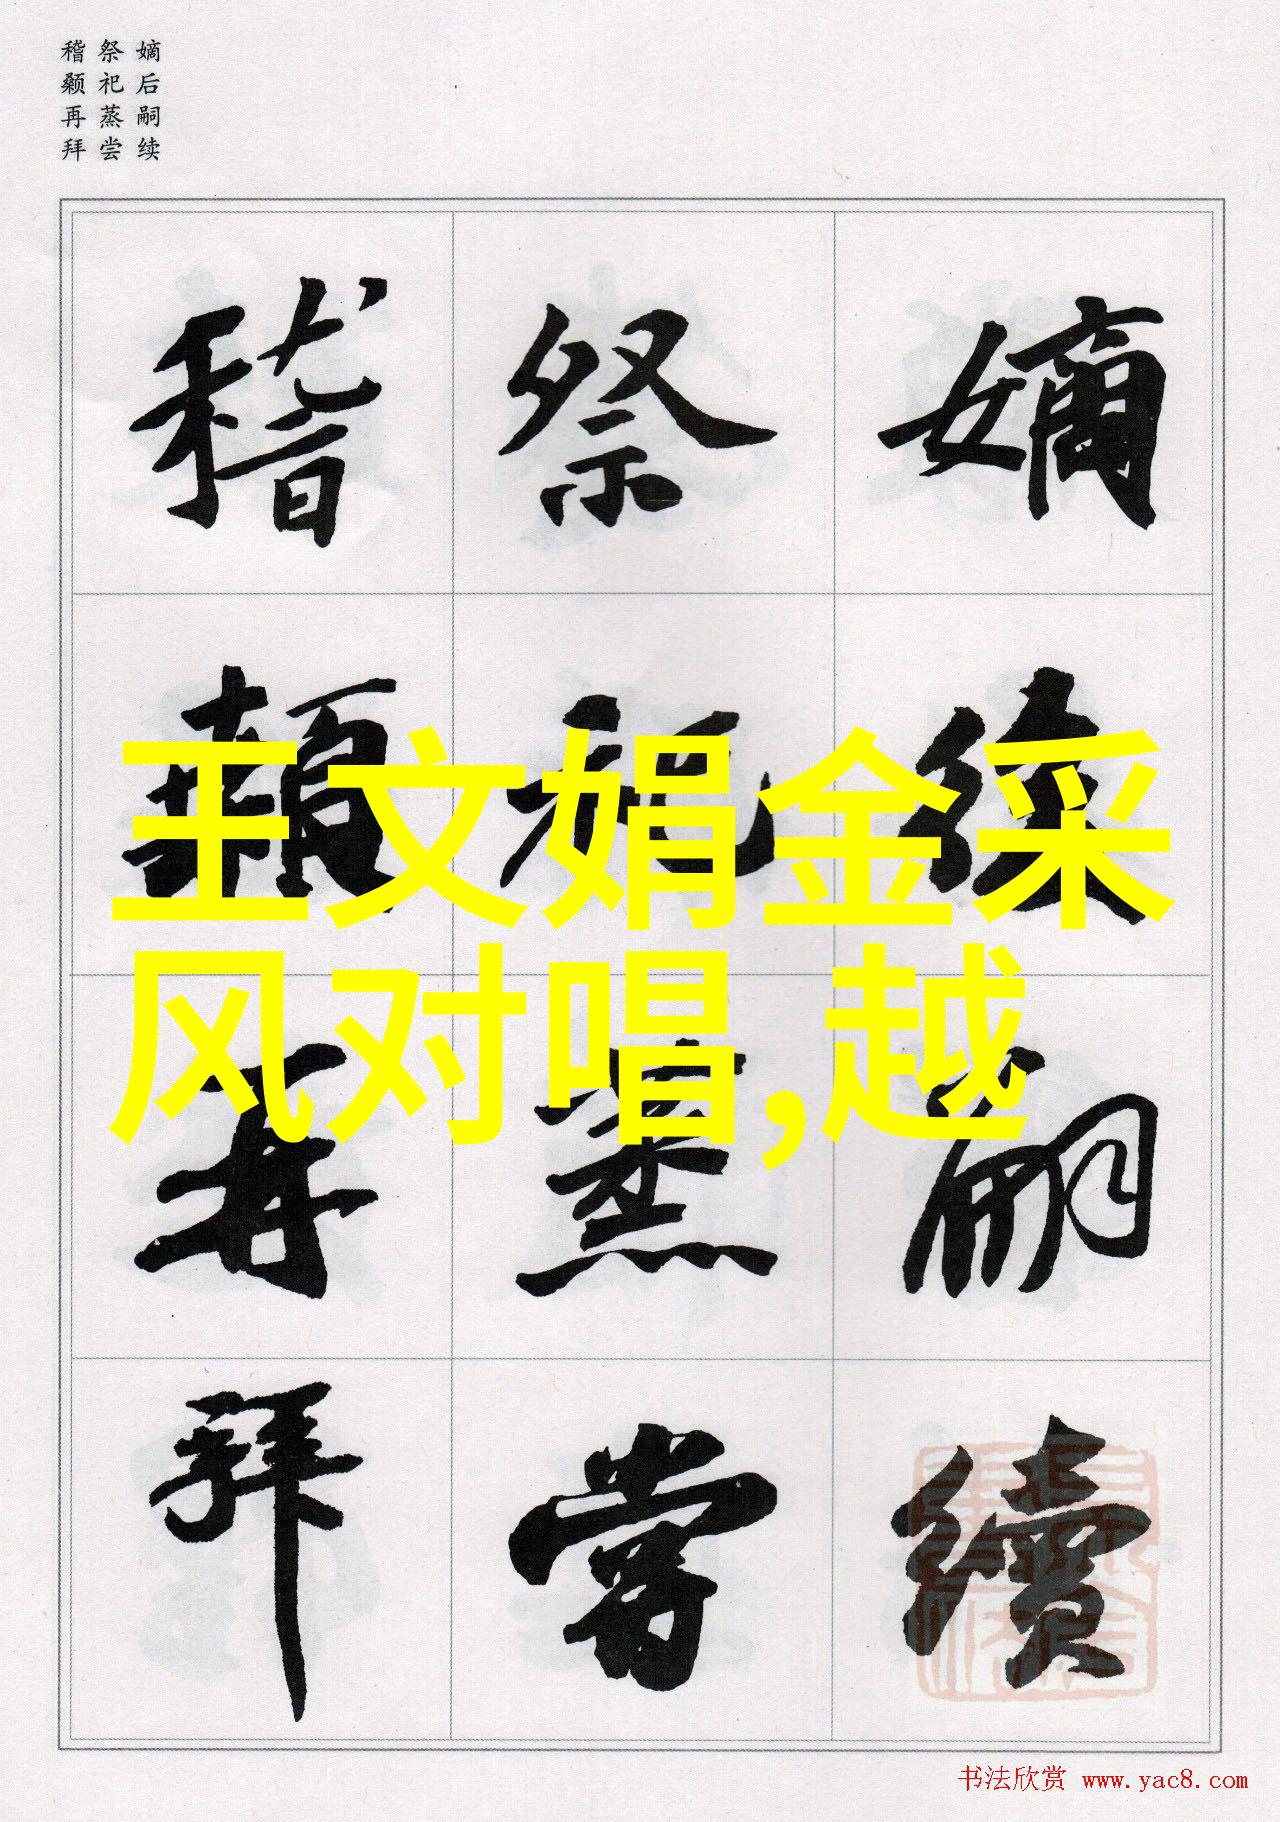 嫡后嗣续
祭祀蒸尝
稽颡再拜
嫡後嗣續
祭祀蒸嘗
稽顙再拜
王文娟金采
风对唱,越
书法欣赏 www.yac8.com